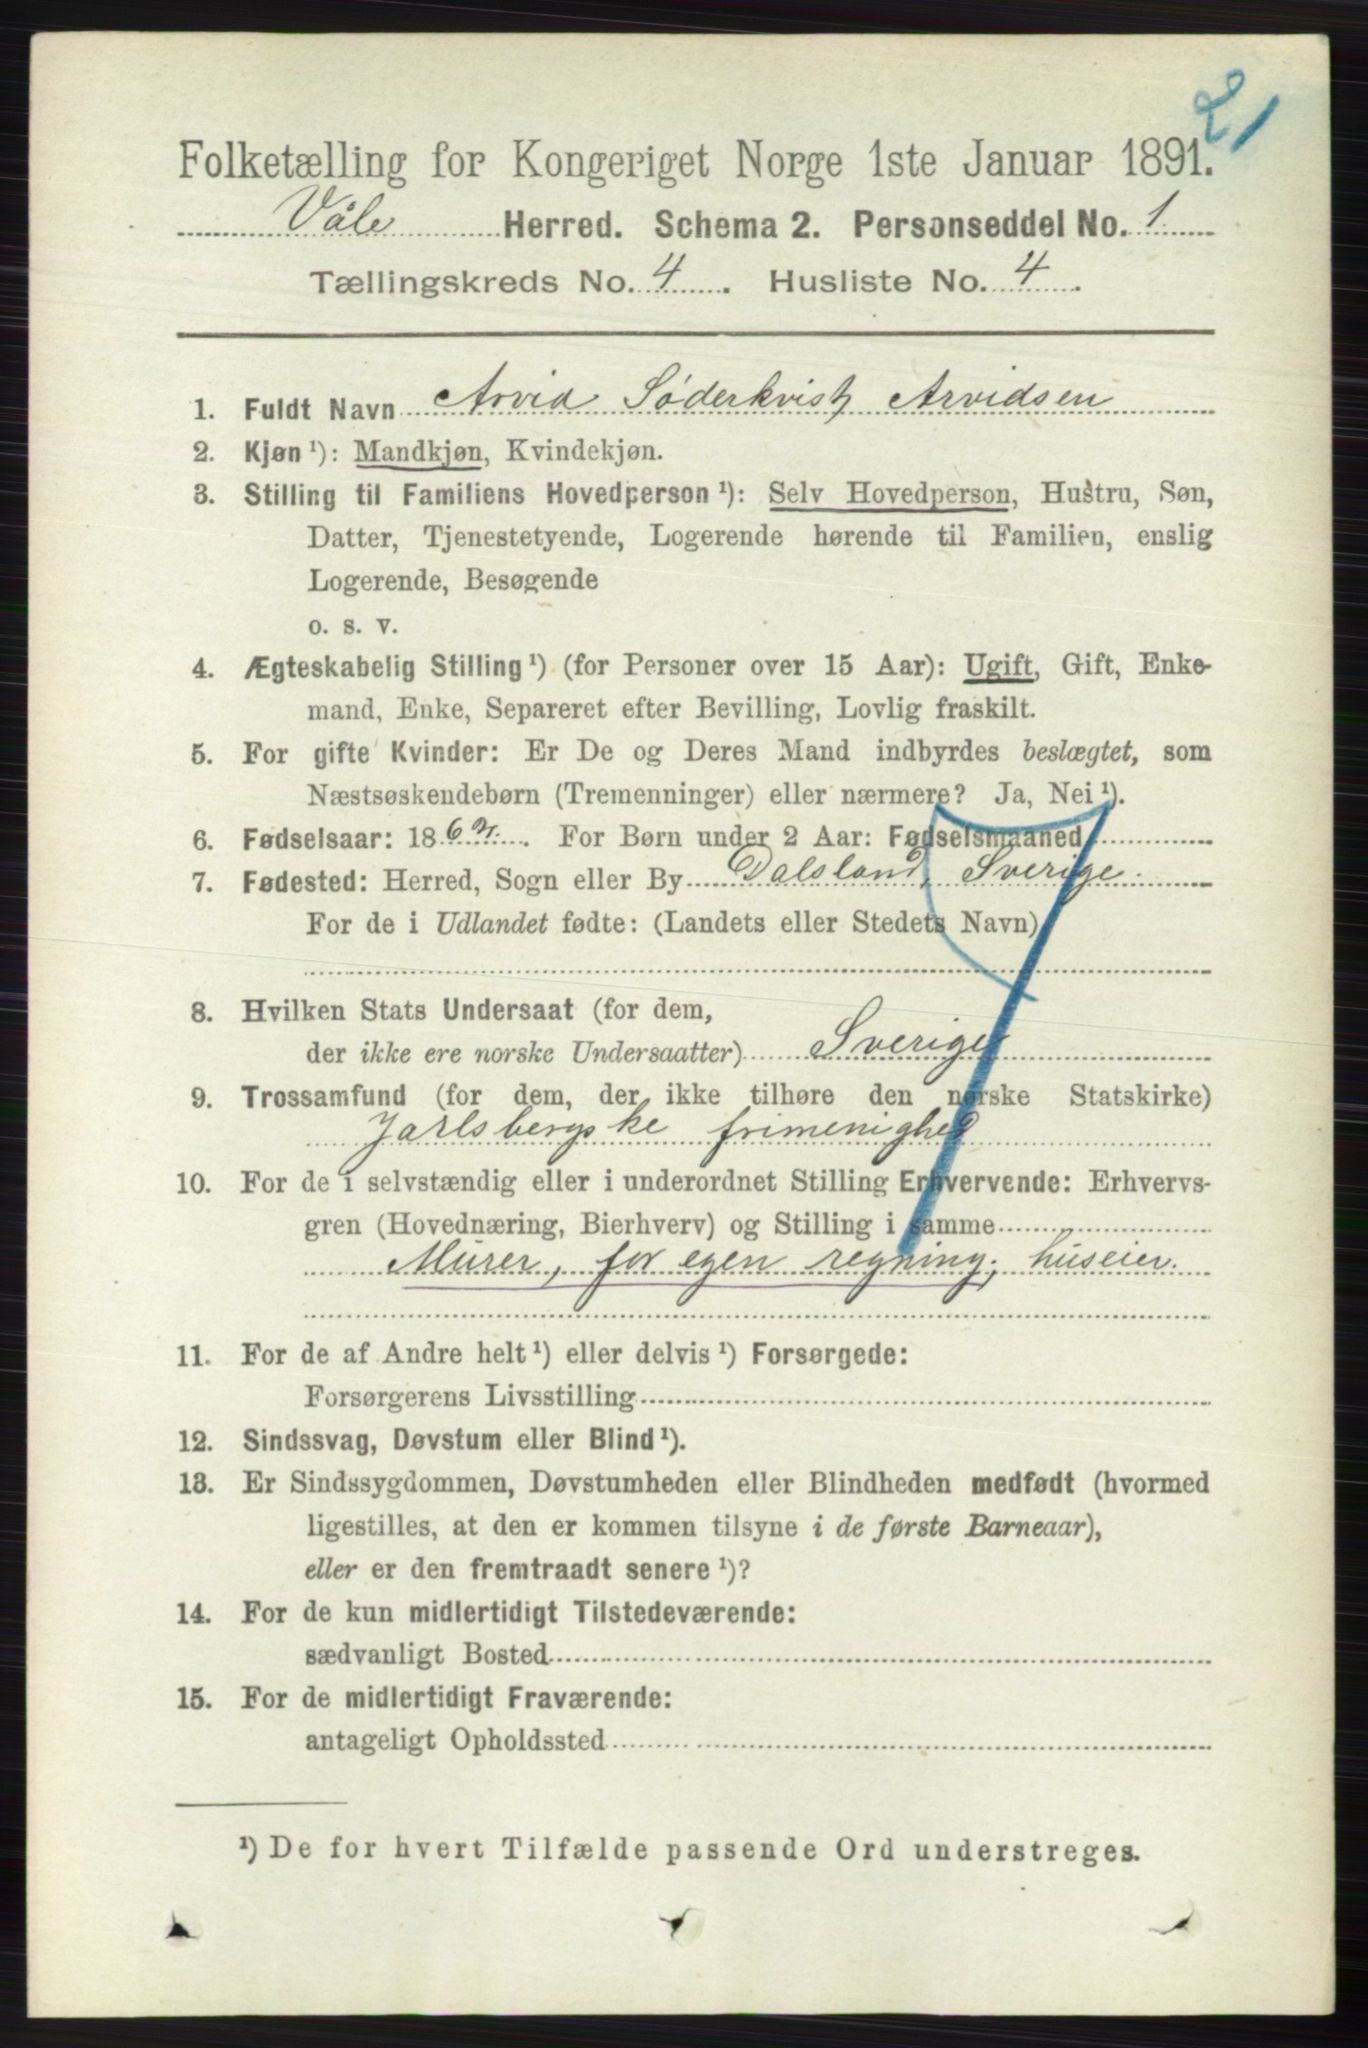 21
Folketælling for Kongeriget Norge 1ste Januar 1891.
Våle Herred. Schema 2. Personseddel No. 1
Tællingskreds No. 4. Husliste No. 4.
1. Fuldt Navn Arvid Søderkvist Arvidsen
2. Kjøn ¹): Mandkjøn, Kvindekjøn.
3. Stilling til Familiens Hovedperson ¹): Selv Hovedperson, Hustru, Søn,
Datter, Tjenestetyende, Logerende hørende til Familien, enslig
Logerende, Besøgende
o. s. v.
4. Ægteskabelig Stilling ¹) (for Personer over 15 Aar): Ugift, Gift, Enke-
mand, Enke, Separeret efter Bevilling, Lovlig fraskilt.
5. For gifte Kvinder: Er De og Deres Mand indbyrdes beslægtet, som
Næstsøskendebørn (Tremenninger) eller nærmere? Ja, Nei ¹).
6. Fødselsaar: 186 . For Børn under 2 Aar: Fødselsmaaned
7. Fødested: Herred, Sogn eller By Dalsland, Sverige.
For de i Udlandet fødte: (Landets eller Stedets Navn)
8. Hvilken Stats Undersaat (for dem,
der ikke ere norske Undersaatter) Sverige
9. Trossamfund (for dem, der ikke tilhøre den norske Statskirke)
Jarlsbergske frimenighed
10. For de i selvstændig eller i underordnet Stilling Erhvervende: Erhvervs-
gren (Hovednæring, Bierhverv) og Stilling i samme
Murer, for egen regning, huseier.
11. For de af Andre helt ¹) eller delvis ¹) Forsørgede:
Forsørgerens Livsstilling
12. Sindssvag, Døvstum eller Blind ¹).
13. Er Sindssygdommen, Døvstumheden eller Blindheden medfødt (hvormed
ligestilles, at den er kommen tilsyne i de første Barneaar),
eller er den fremtraadt senere ¹)?
14. For de kun midlertidigt Tilstedeværende:
sædvanligt Bosted
15. For de midlertidigt Fraværende:
antageligt Opholdssted
¹) De for hvert Tilfælde passende Ord understreges.